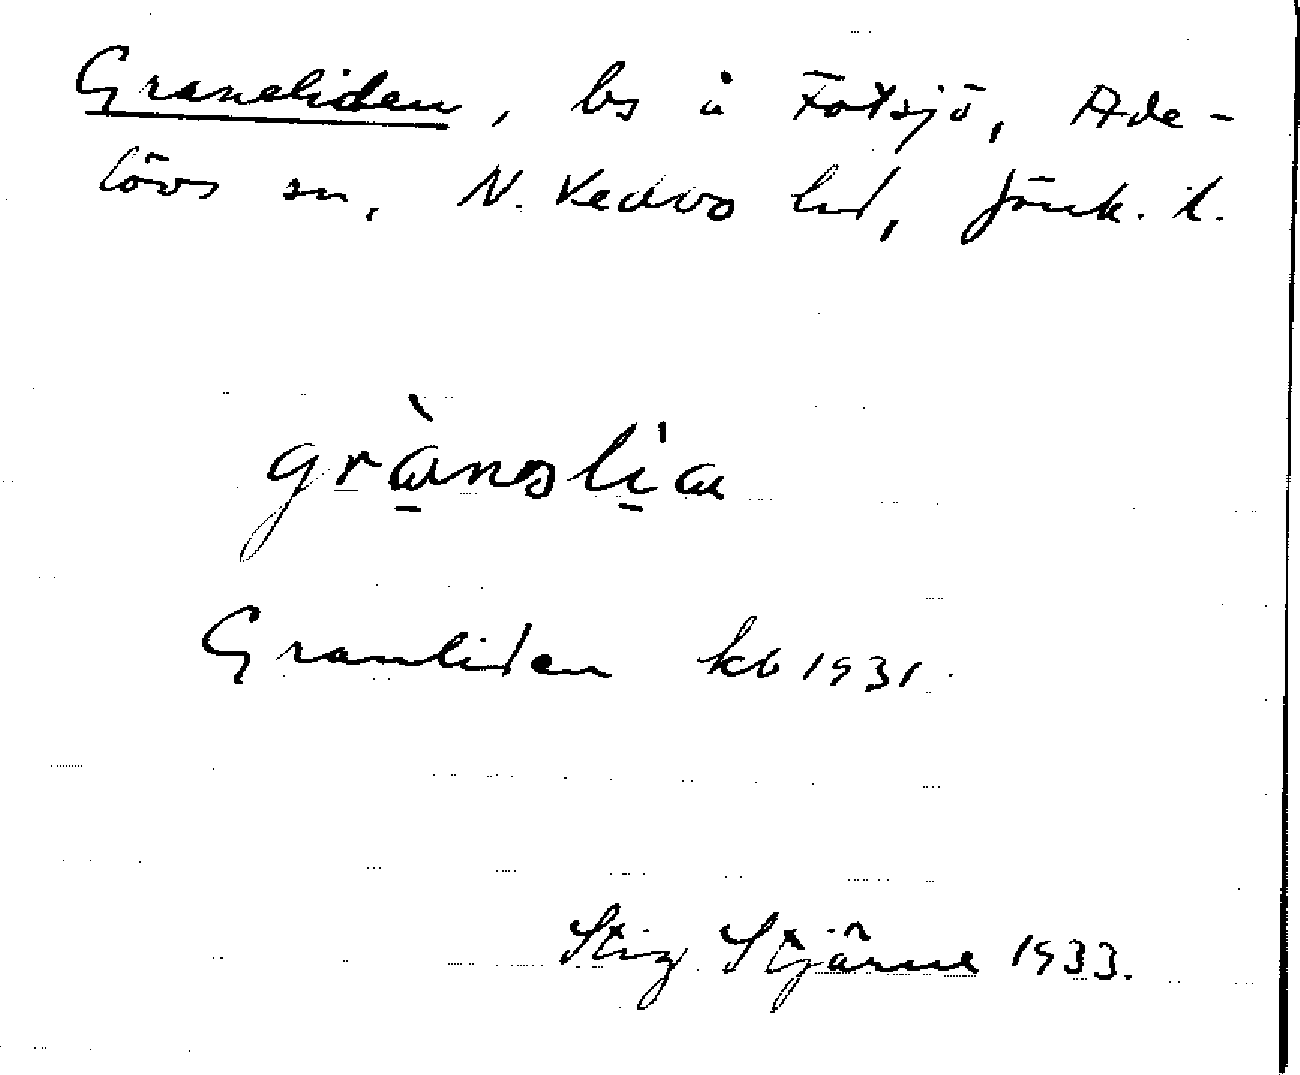 Graneliden, ls å Fotsjö, Ade-
lövs sn, N. Vedbo hd, Jönk. l.
grànəslia
Granliden kb 1931.
Stig Stjärne 1933.